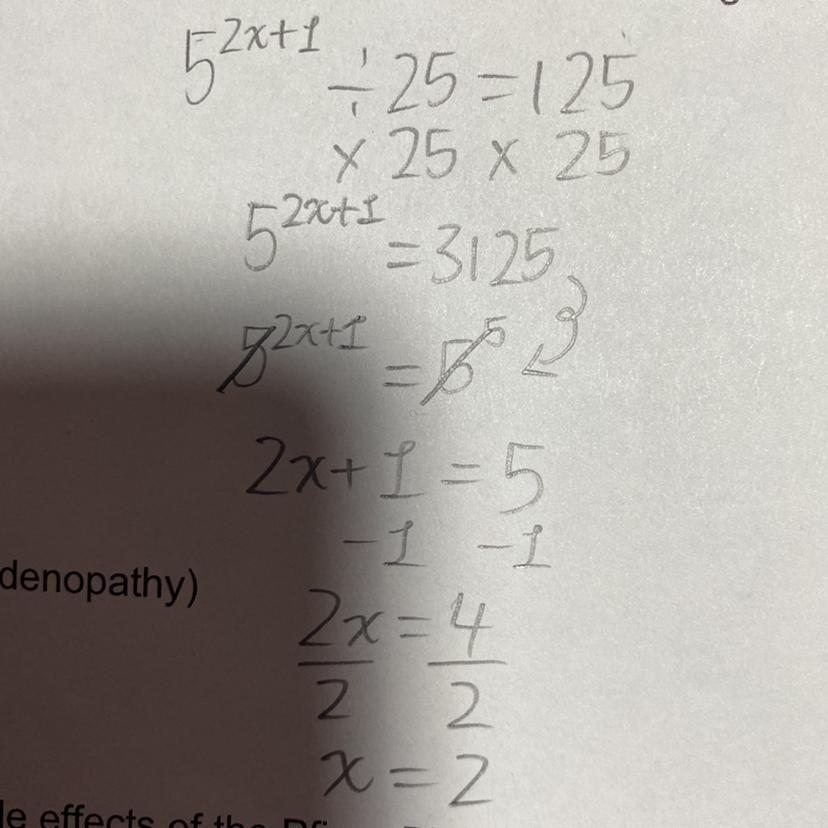 5^{2x+1} ÷ 25 = 125
× 25 × 25
5^{2x+1} = 3125
5^{2x+1} = 5^5
2x + 1 = 5
-1 -1
denopathy)
2x = 4
2 2
x = 2
le effects of the